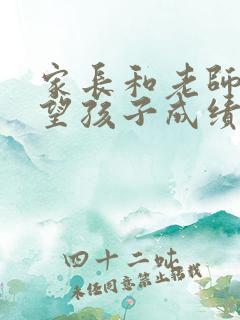 家長和老師
望孩子成績
四十二吠
未经同意禁止搭載